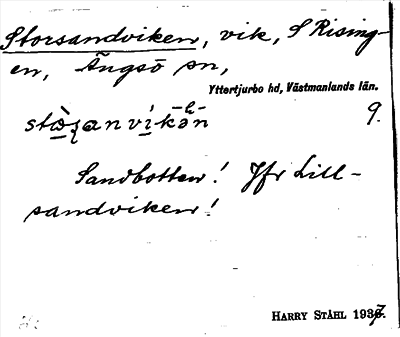 Storsandviken, vik, S Rising-
en, Ängsö sn,
Yttertjurbo hd, Västmanlands län.
9.
Sandbotten! Jfr Lill-
sandviken!
HARRY STÅHL 1937.